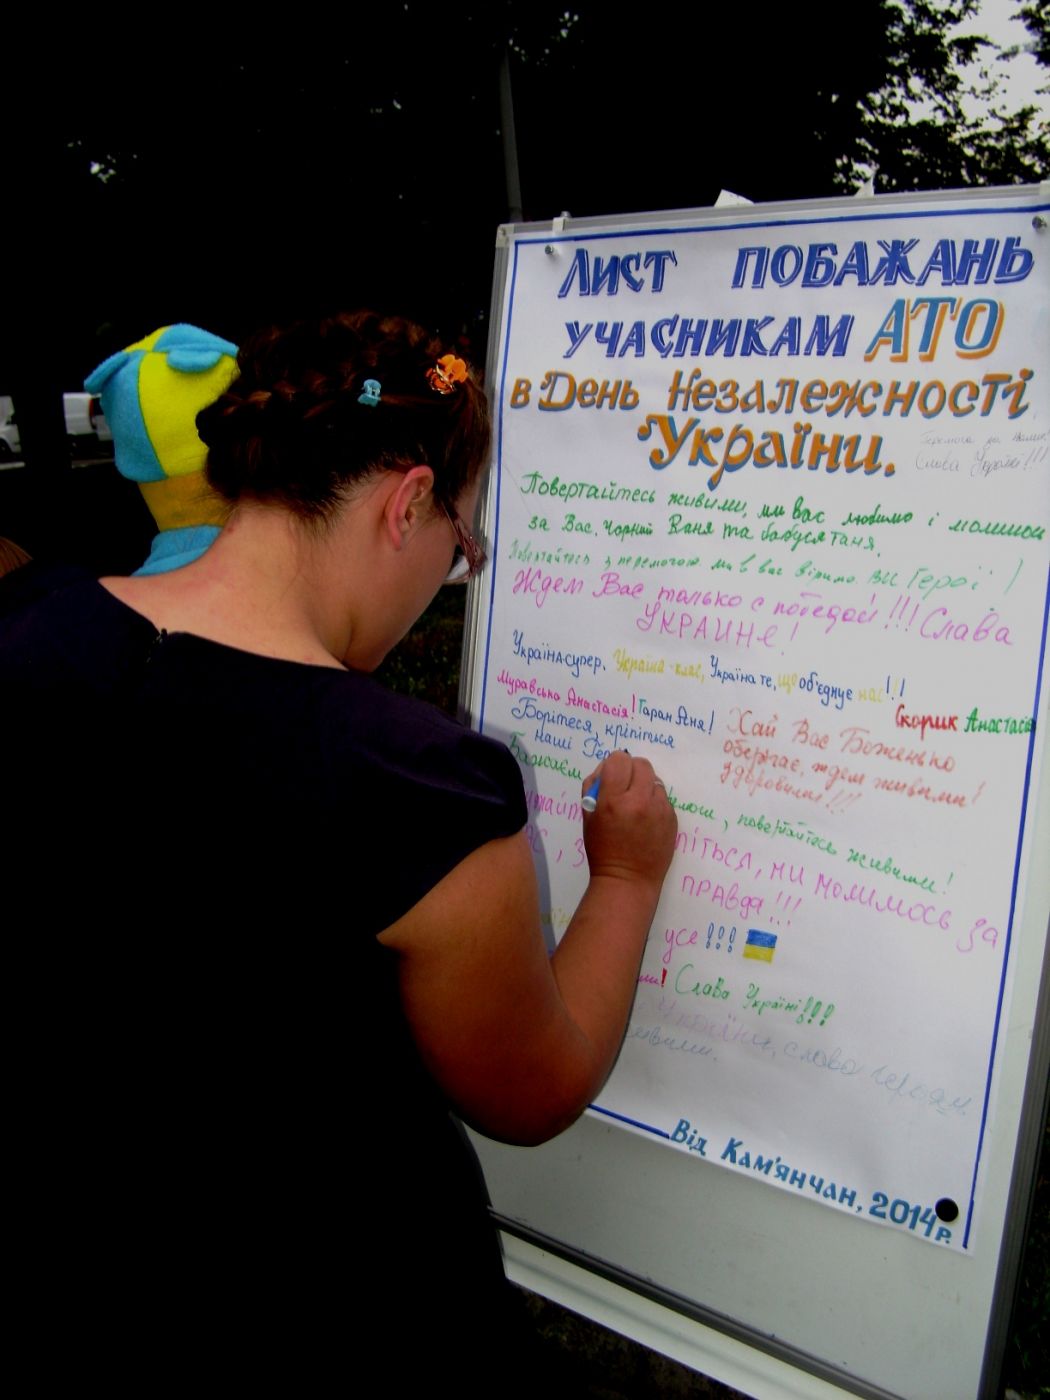 ЛИСТ ПОБАЖАНЬ
УЧАСНИКАМ АТО
в День Незалежності
України.
Слава Україні!!!
Повертайтесь живими, ми вас любимо і молимось
за Вас. Чорний Ваня та бабуся Таня.
Повертайтесь з перемогою. ми в вас віримо. Ви Герої!
Ждем Вас только с победой!!! Слава
УКРАИНЕ!
Україна супер. Україна-клас, Україна те, що об'єднує нас!!!
Муравська Анастасія! Гаран Аня!
Скорик Анастасія
Борітеся, кріпіться
наші
Хай Вас Боженько
оберігає, ждем живими!
здоровими!!!
Бажаєм
, повертайтесь живими!
, ми молимось за
правда!!!
усе!!!
Слава Україні!!!
України, слава героям.
живими.
Від Кам'янчан, 2014р.